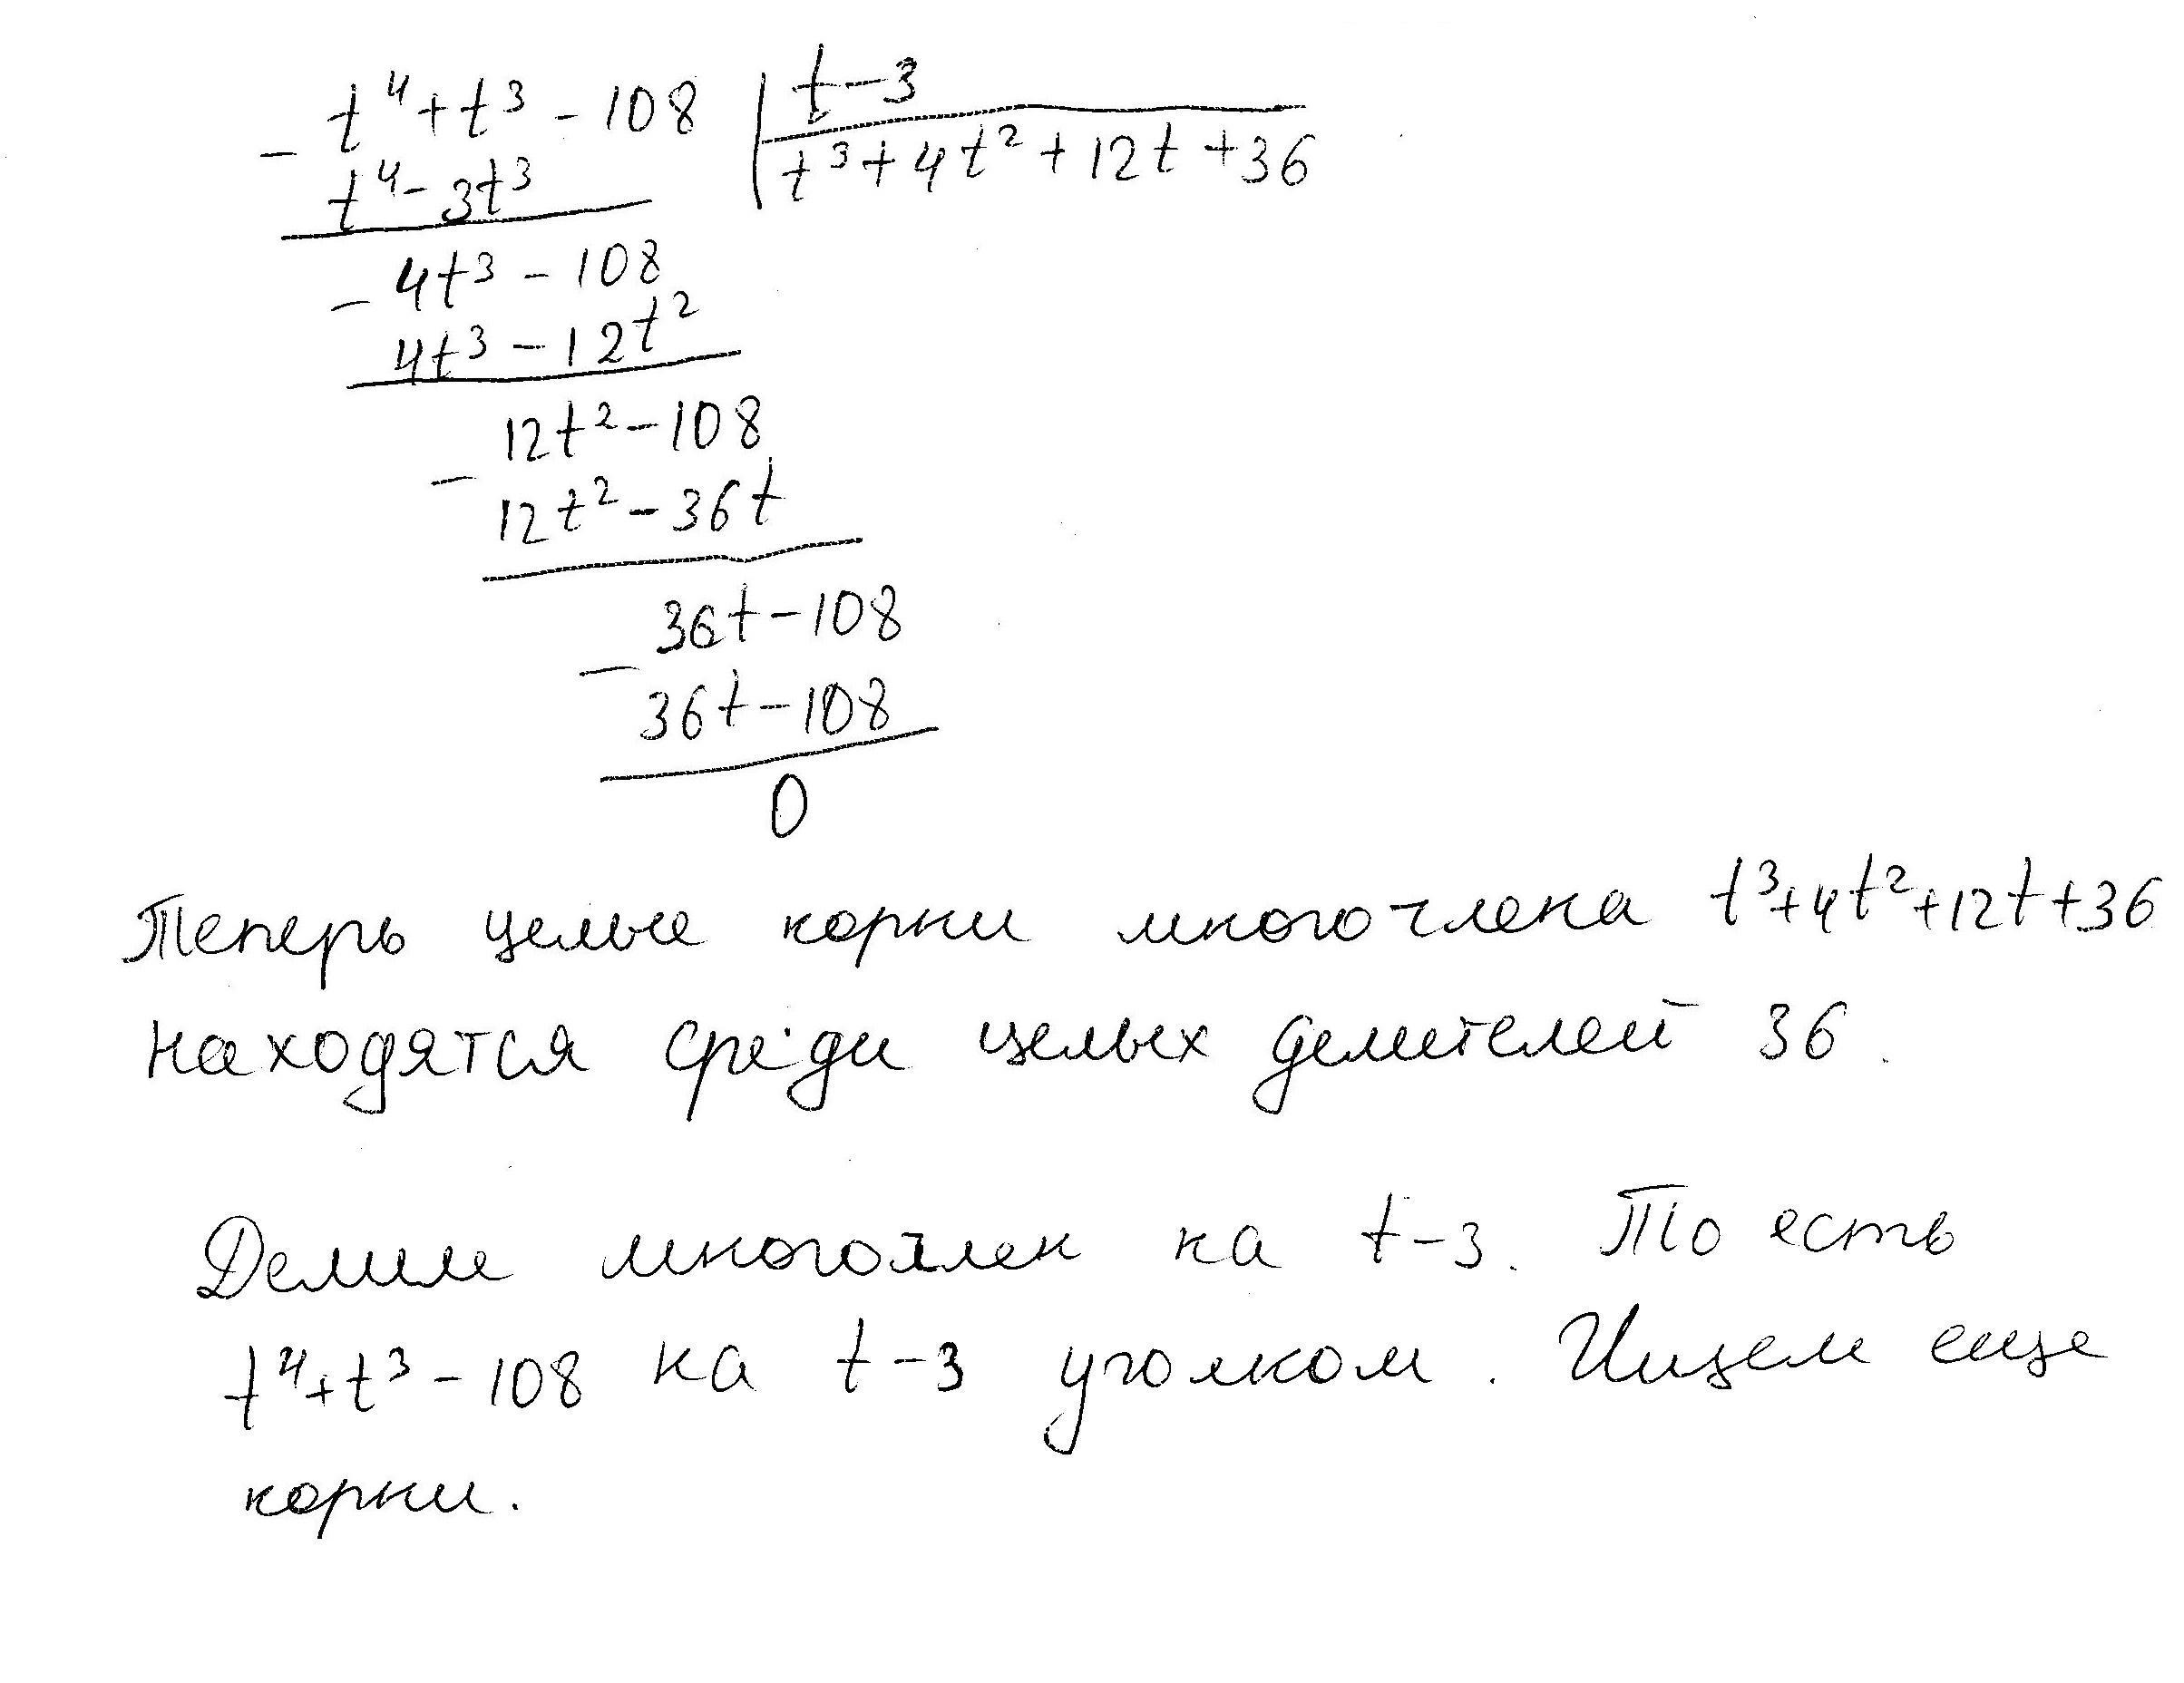 t⁴+t³-108 | t-3
- t⁴-3t³ | t³+4t²+12t+36
4t³-108
- 4t³-12t²
12t²-108
- 12t²-36t
36t-108
- 36t-108
0
Теперь целые корни многочлена t³+4t²+12t+36
находятся среди целых делителей 36.
Делим многочлен на t-3. То есть
t⁴+t³-108 на t-3 уголком. Ищем еще
корни.